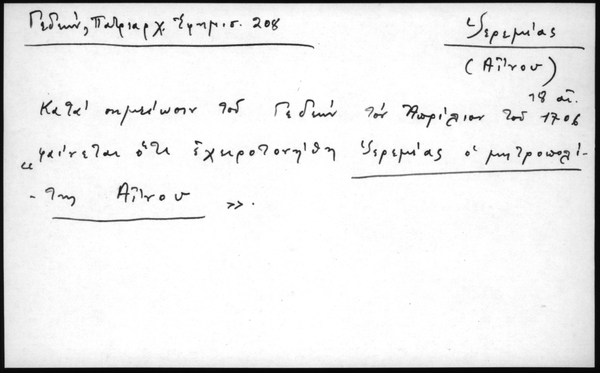 Γεδεών, Πατριαρχ. Ἐφημερ. 208
Ἱερεμίας
(Αἴνου)
18 αἰ.
Κατά σημείωσιν τοῦ Γεδεών τόν Ἀπρίλιον τοῦ 1706
"φαίνεται ὅτι ἐχειροτονήθη Ἱερεμίας ὁ μητροπολί-
-της Αἴνου».